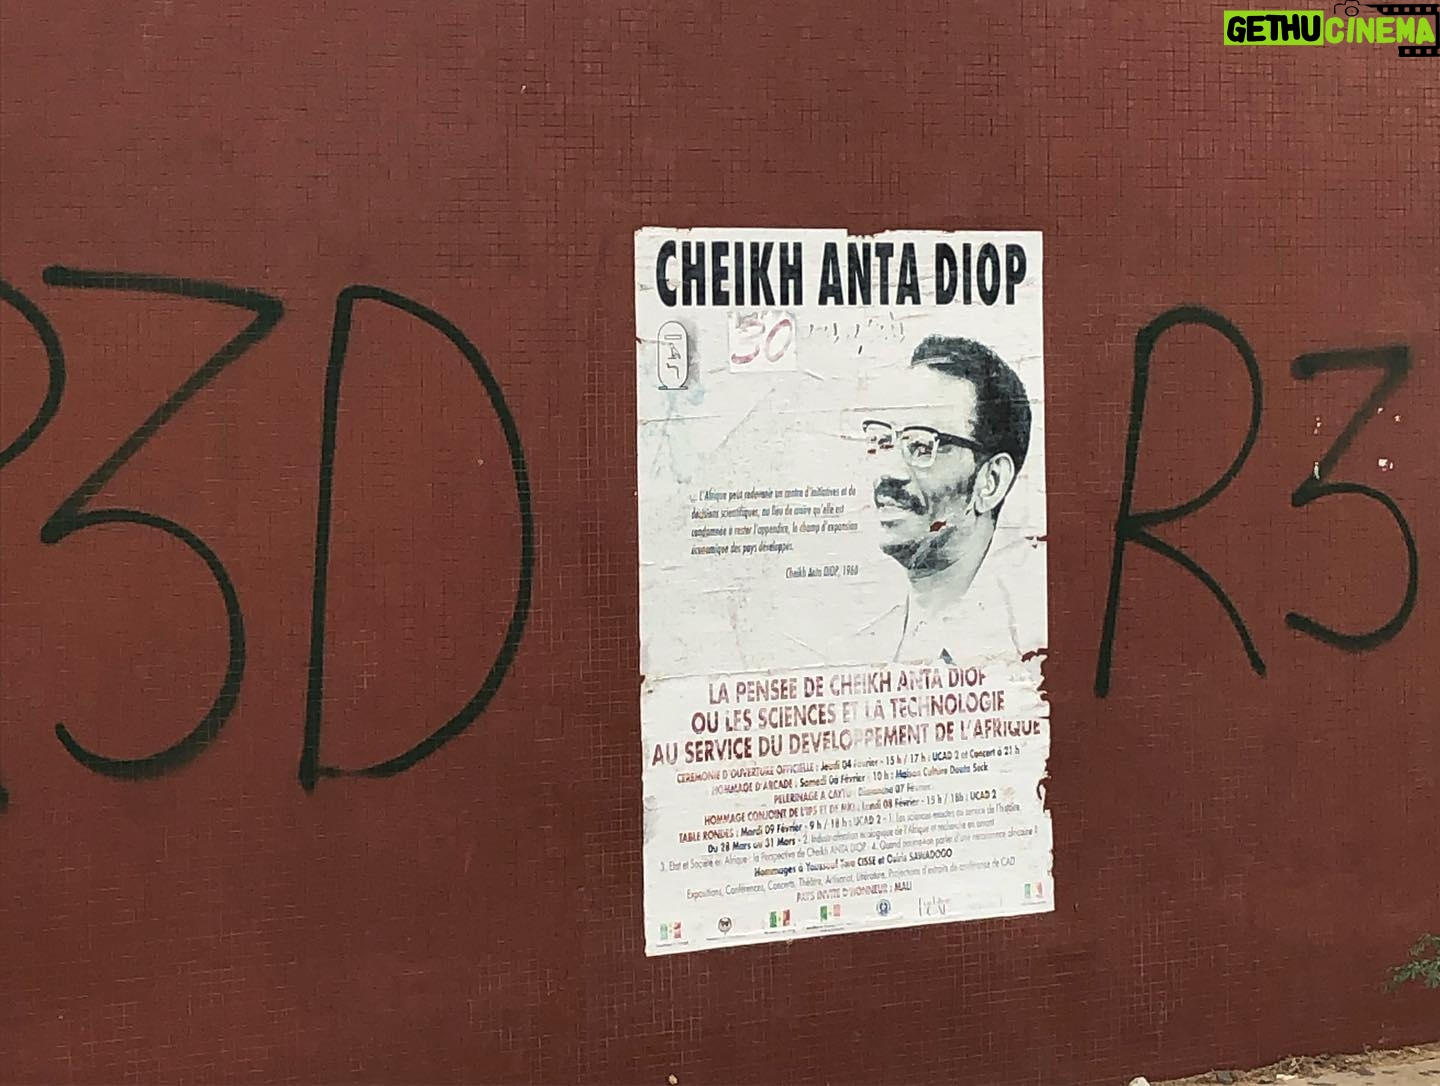 GETHUCINEMA
CHEIKH ANTA DIOP
30
3D
R3
... L'Afrique peut redevenir un centre d'initiatives et de
décisions scientifiques, au lieu de croire qu'elle est
condamnée à rester l'appendice, le champ d'expansion
économique des pays développés.
Cheikh Anta DIOP, 1960
LA PENSEE DE CHEIKH ANTA DIOP
OU LES SCIENCES ET LA TECHNOLOGIE
AU SERVICE DU DEVELOPPEMENT DE L'AFRIQUE
CEREMONIE D'OUVERTURE OFFICIELLE : Jeudi 04 Février - 15 h / 17 h : UCAD 2 et Concert à 21 h
HOMMAGE D'ARCADE : Samedi 06 Février - 10 h : Maison Culture Douta Seck
PELERINAGE A CAYTU : Dimanche 07 Février
HOMMAGE CONJOINT DE L'IPS ET DE : Lundi 08 Février - 15 h / 18h : UCAD 2
TABLE RONDES : Mardi 09 Février - 9 h / 18 h : UCAD 2 - 1. Les sciences exactes au service de l'histoire
Du 28 Mars au 31 Mars - 2. Industrialisation écologique de l'Afrique et recherche en amont
3. Etat et Société en Afrique : la Perspective de Cheikh ANTA DIOP - 4. Quand pourra-t-on parler d'une renaissance africaine ?
Hommages à Youssouf Tata CISSE et Osiris SAWADOGO
Expositions, Conférences, Concerts, Théâtre, Artisanat, Littérature, Projections d'extraits de conférence de CAD
PAYS INVITE D'HONNEUR : MALI